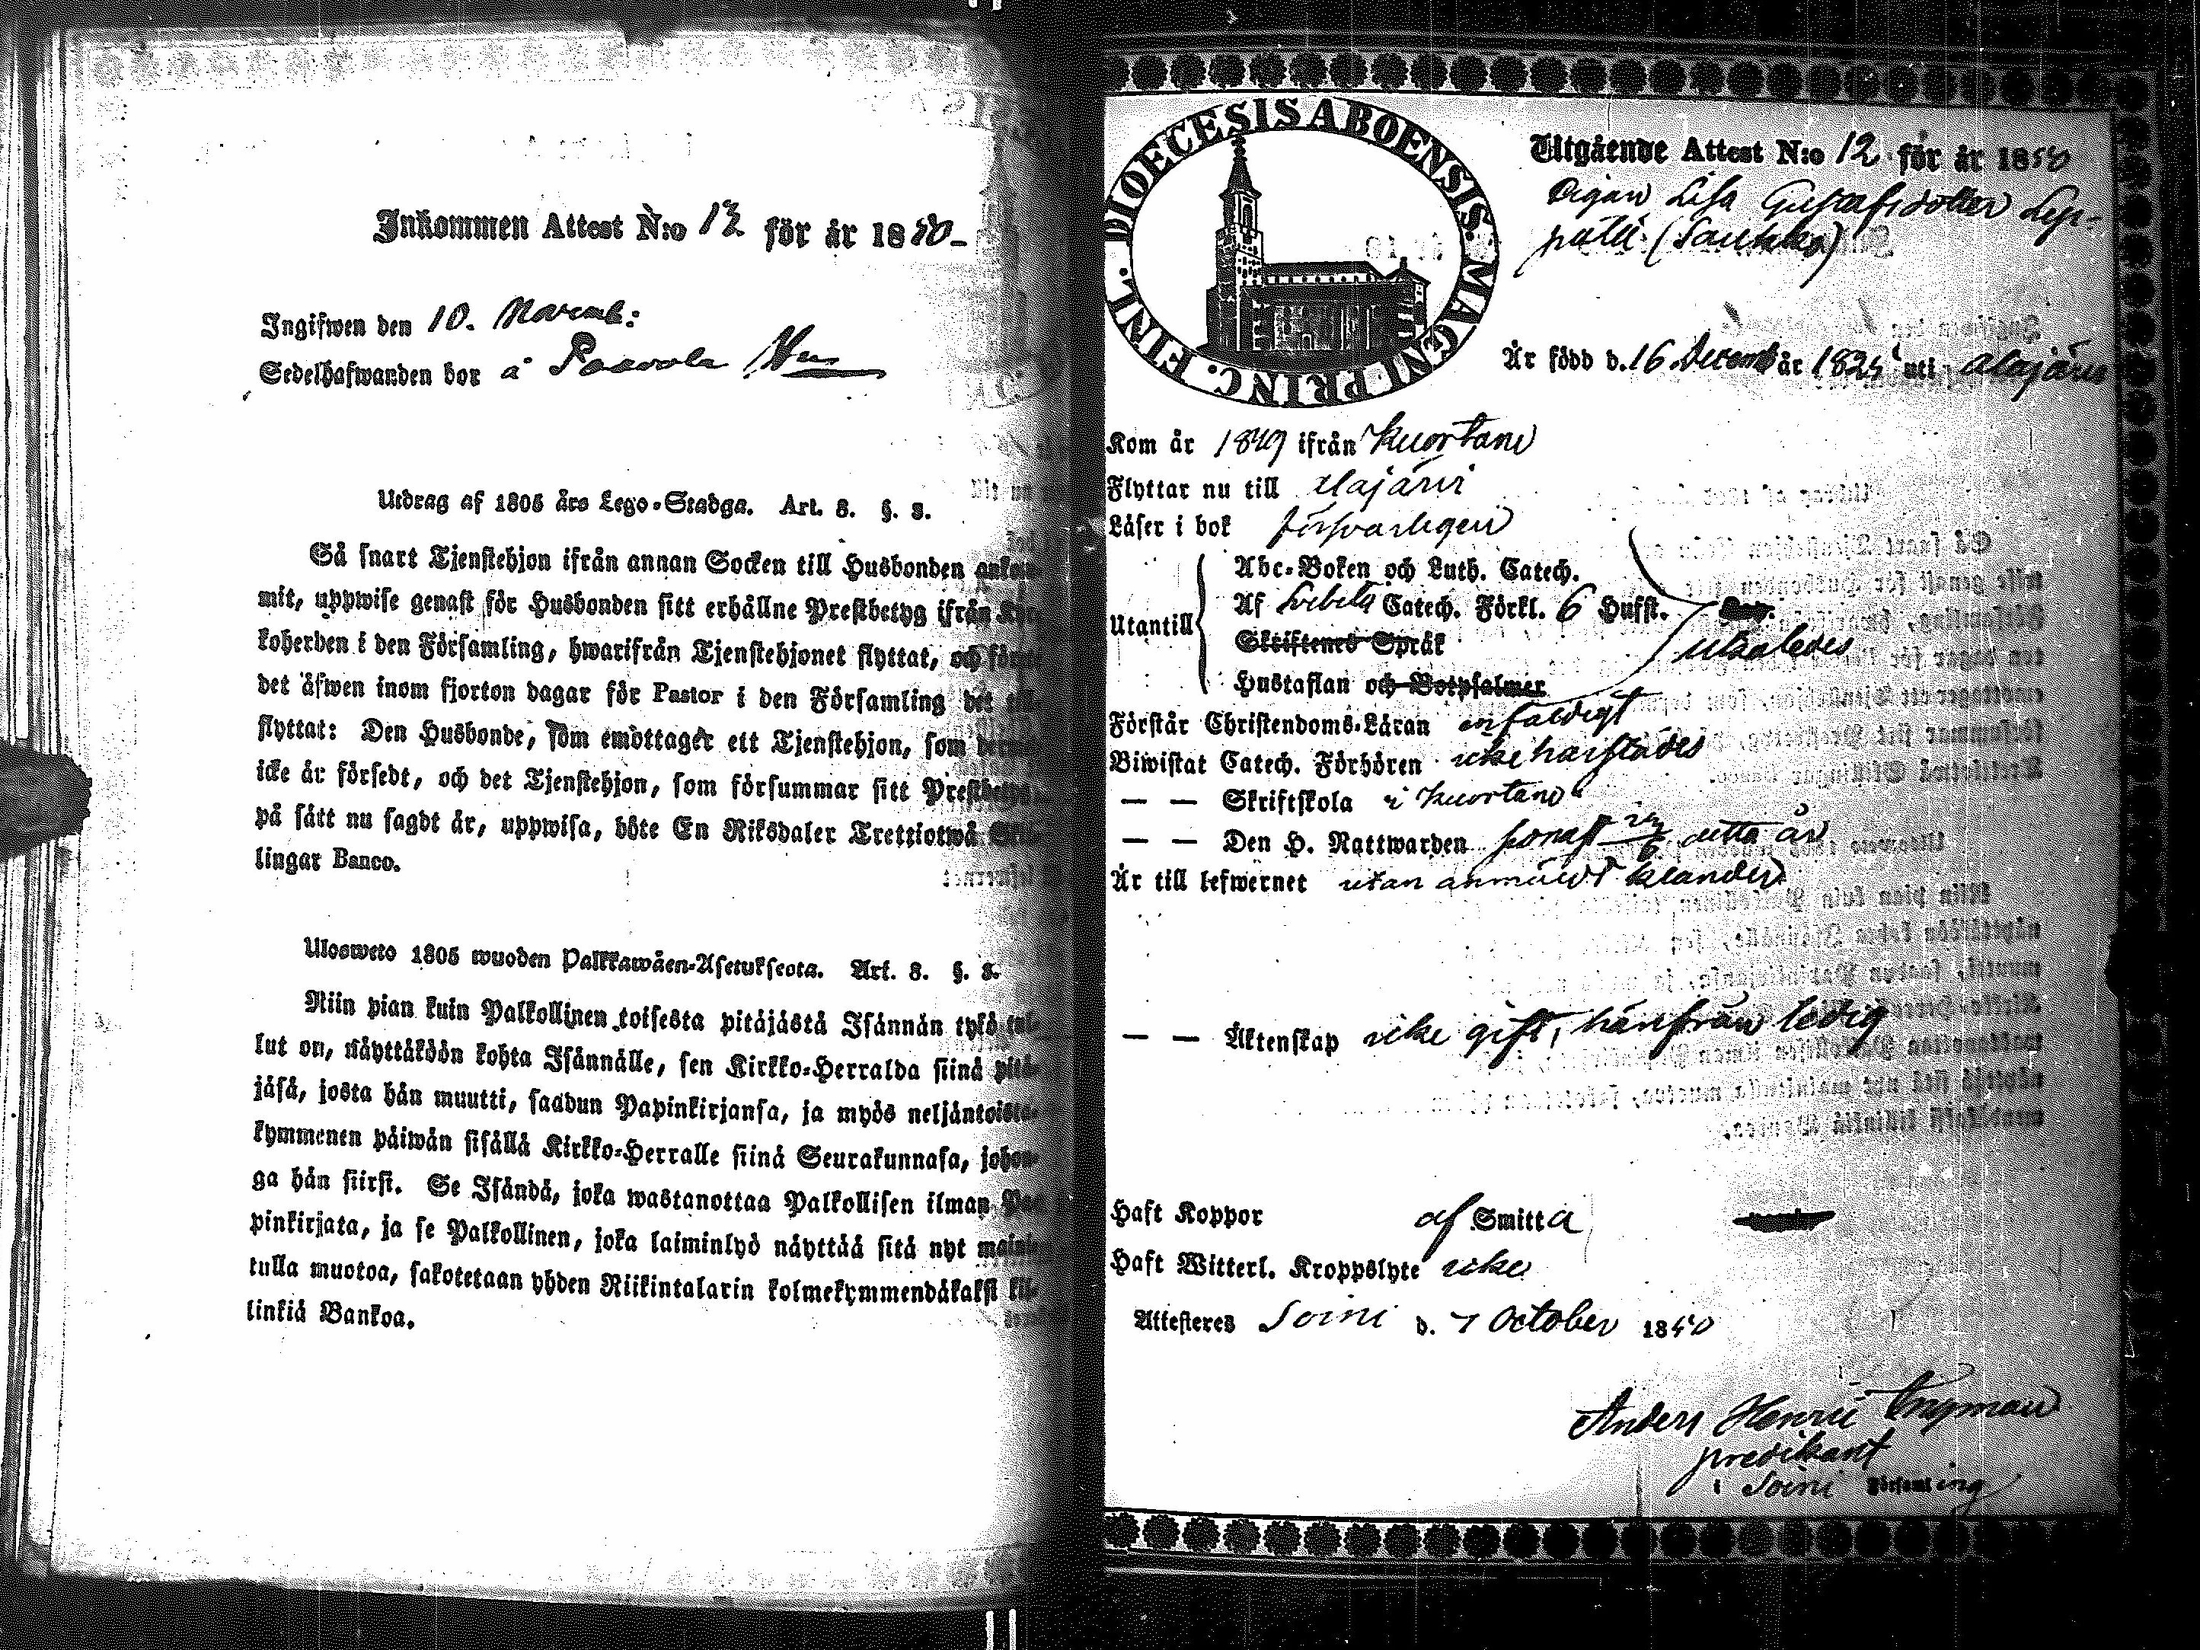 Inkommen Attest N:o 12 för år 1850
Ingifwen den 10. Novemb:
Sedelhafwanden bor å Paavola
Utdrag af 1805 års Lego-Stadga. Art. 8. §. 3.
Så snart Tjenstehjon ifrån annan Socken till Husbonden ankom-
mit, uppwise genast för Husbonden sitt erhållne Prestbetyg ifrån Kyr-
koherden i den Församling, hwarifrån Tjenstehjonet flyttat, och förete
det äfwen inom fjorton dagar för Pastor i den Församling det
flyttat: Den Husbonde, som emottager ett Tjenstehjon, som dermed
icke är försedt, och det Tjenstehjon, som försummar sitt Prestbetyg
på sätt nu sagdt är, uppwisa, böte En Riksdaler Trettiotwå Skil-
lingar Banco.
Ulosweto 1805 wuoden Palkkawäen-Asetuksesta. Art. 8. §. 3.
Niin pian kuin Palkollinen toisesta pitäjästä Isännän tykö tul-
lut on, näyttäköön kohta Isännälle, sen Kirkko-Herralda siinä pitä-
jäsä, josta hän muutti, saadun Papinkirjansa, ja myös neljäntoista-
kymmenen päiwän sisällä Kirkko-Herralle siinä Seurakunnasa, johon-
ga hän siirsi. Se Isändä, joka wastanottaa Palkollisen ilman Pa-
pinkirjata, ja se Palkollinen, joka laiminlyö näyttää sitä nyt mainit-
tulla muotoa, sakotetaan yhden Riikintalarin kolmekymmendäkaksi kil-
linkiä Bankoa.
DIOECESIS ABOENSIS. MAGNI PRINC. FINL.
Utgående Attest N:o 12 för år 1850
Pigan Lisa Gustafsdotter Lep-
pälä (Saukko)
Är född d. 16 Decemb år 1825 uti Alajärvi
Kom år 1849 ifrån Kuortane
Flyttar nu till Alajärvi
Läser i bok försvarligen
Utantill
Abc-Boken och Luth. Catech.
Af Svebelii Catech. Förkl. 6 Hufst.
Skriftenes Språk
Hustaflan och Botpsalmer
Förstår Christendoms-Läran enfaldigt
Biwistat Catech. Förhören icke härstädes
— — Skriftskola i Kuortane
— — Den H. Nattwarden senast detta år
Är till lefwernet utan anmäldt klander
— — Äktenskap icke gift, härifrån ledig
Haft Koppor af Smitta
Haft Witterl. Kroppslyte icke
Attesteres Soini d. 7 October 1850
Anders Henric Ingman
predikant
i Soini Församling